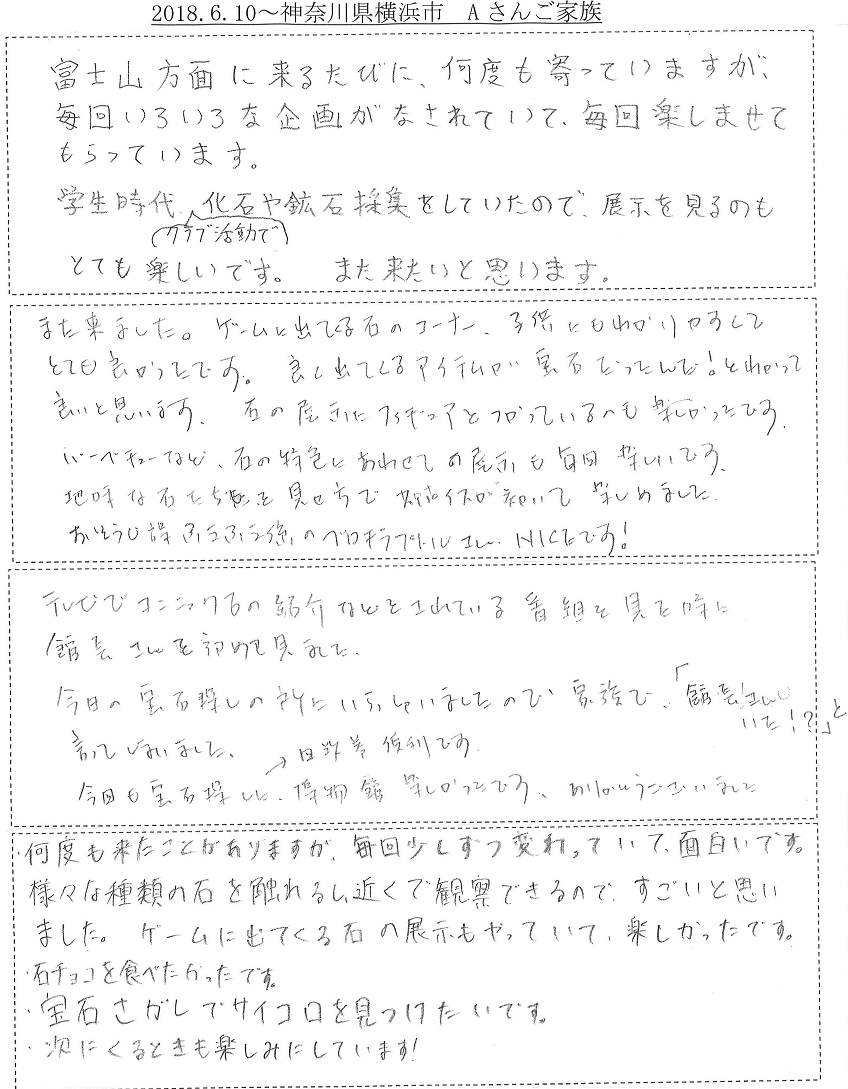 2018.6.10～神奈川県横浜市　Aさんご家族
富士山方面に来るたびに、何度も寄っていますが、
毎回いろいろな企画がなされていて、毎回楽しませて
もらっています。
学生時代、化石や鉱石採集をしていたので、展示を見るのも
(クラブ活動で)
とても楽しいです。　また来たいと思います。
また来ました。ゲームに出てくる石のコーナー、子供にもわかりやすくて
とても良かったです。良く出てくるアイテムが宝石だったんだ！とわかって
良いと思います。石の展示にフィギュアとつかっているのも楽しかったです。
バーベキューなど、石の特色にあわせての展示も毎回楽しいです。
地味な石たちを見せ方で 効いて楽しめました。
おそうじ課ふきふき係のベロキラプトルさん NICEです！
テレビでコニャック石の紹介などをされている番組を見た時に
館長さんを初めて見ました。
今日の宝石探しの時にいらっしゃいましたので家族で、「館長さん
いた！？」と
言ってしまいました。
→日数券 便利です。
今回も宝石探しに、博物館楽しかったです、ありがとうございました
・何度も来たことがありますが、毎回少しずつ変わっていて、面白いです。
様々な種類の石を触れるし、近くで観察できるので、すごいと思い
ました。ゲームに出てくる石の展示もやっていて、楽しかったです。
・石チョコを食べたかったです。
・宝石さがしでサイコロを見つけたいです。
・次にくるときも楽しみにしています！